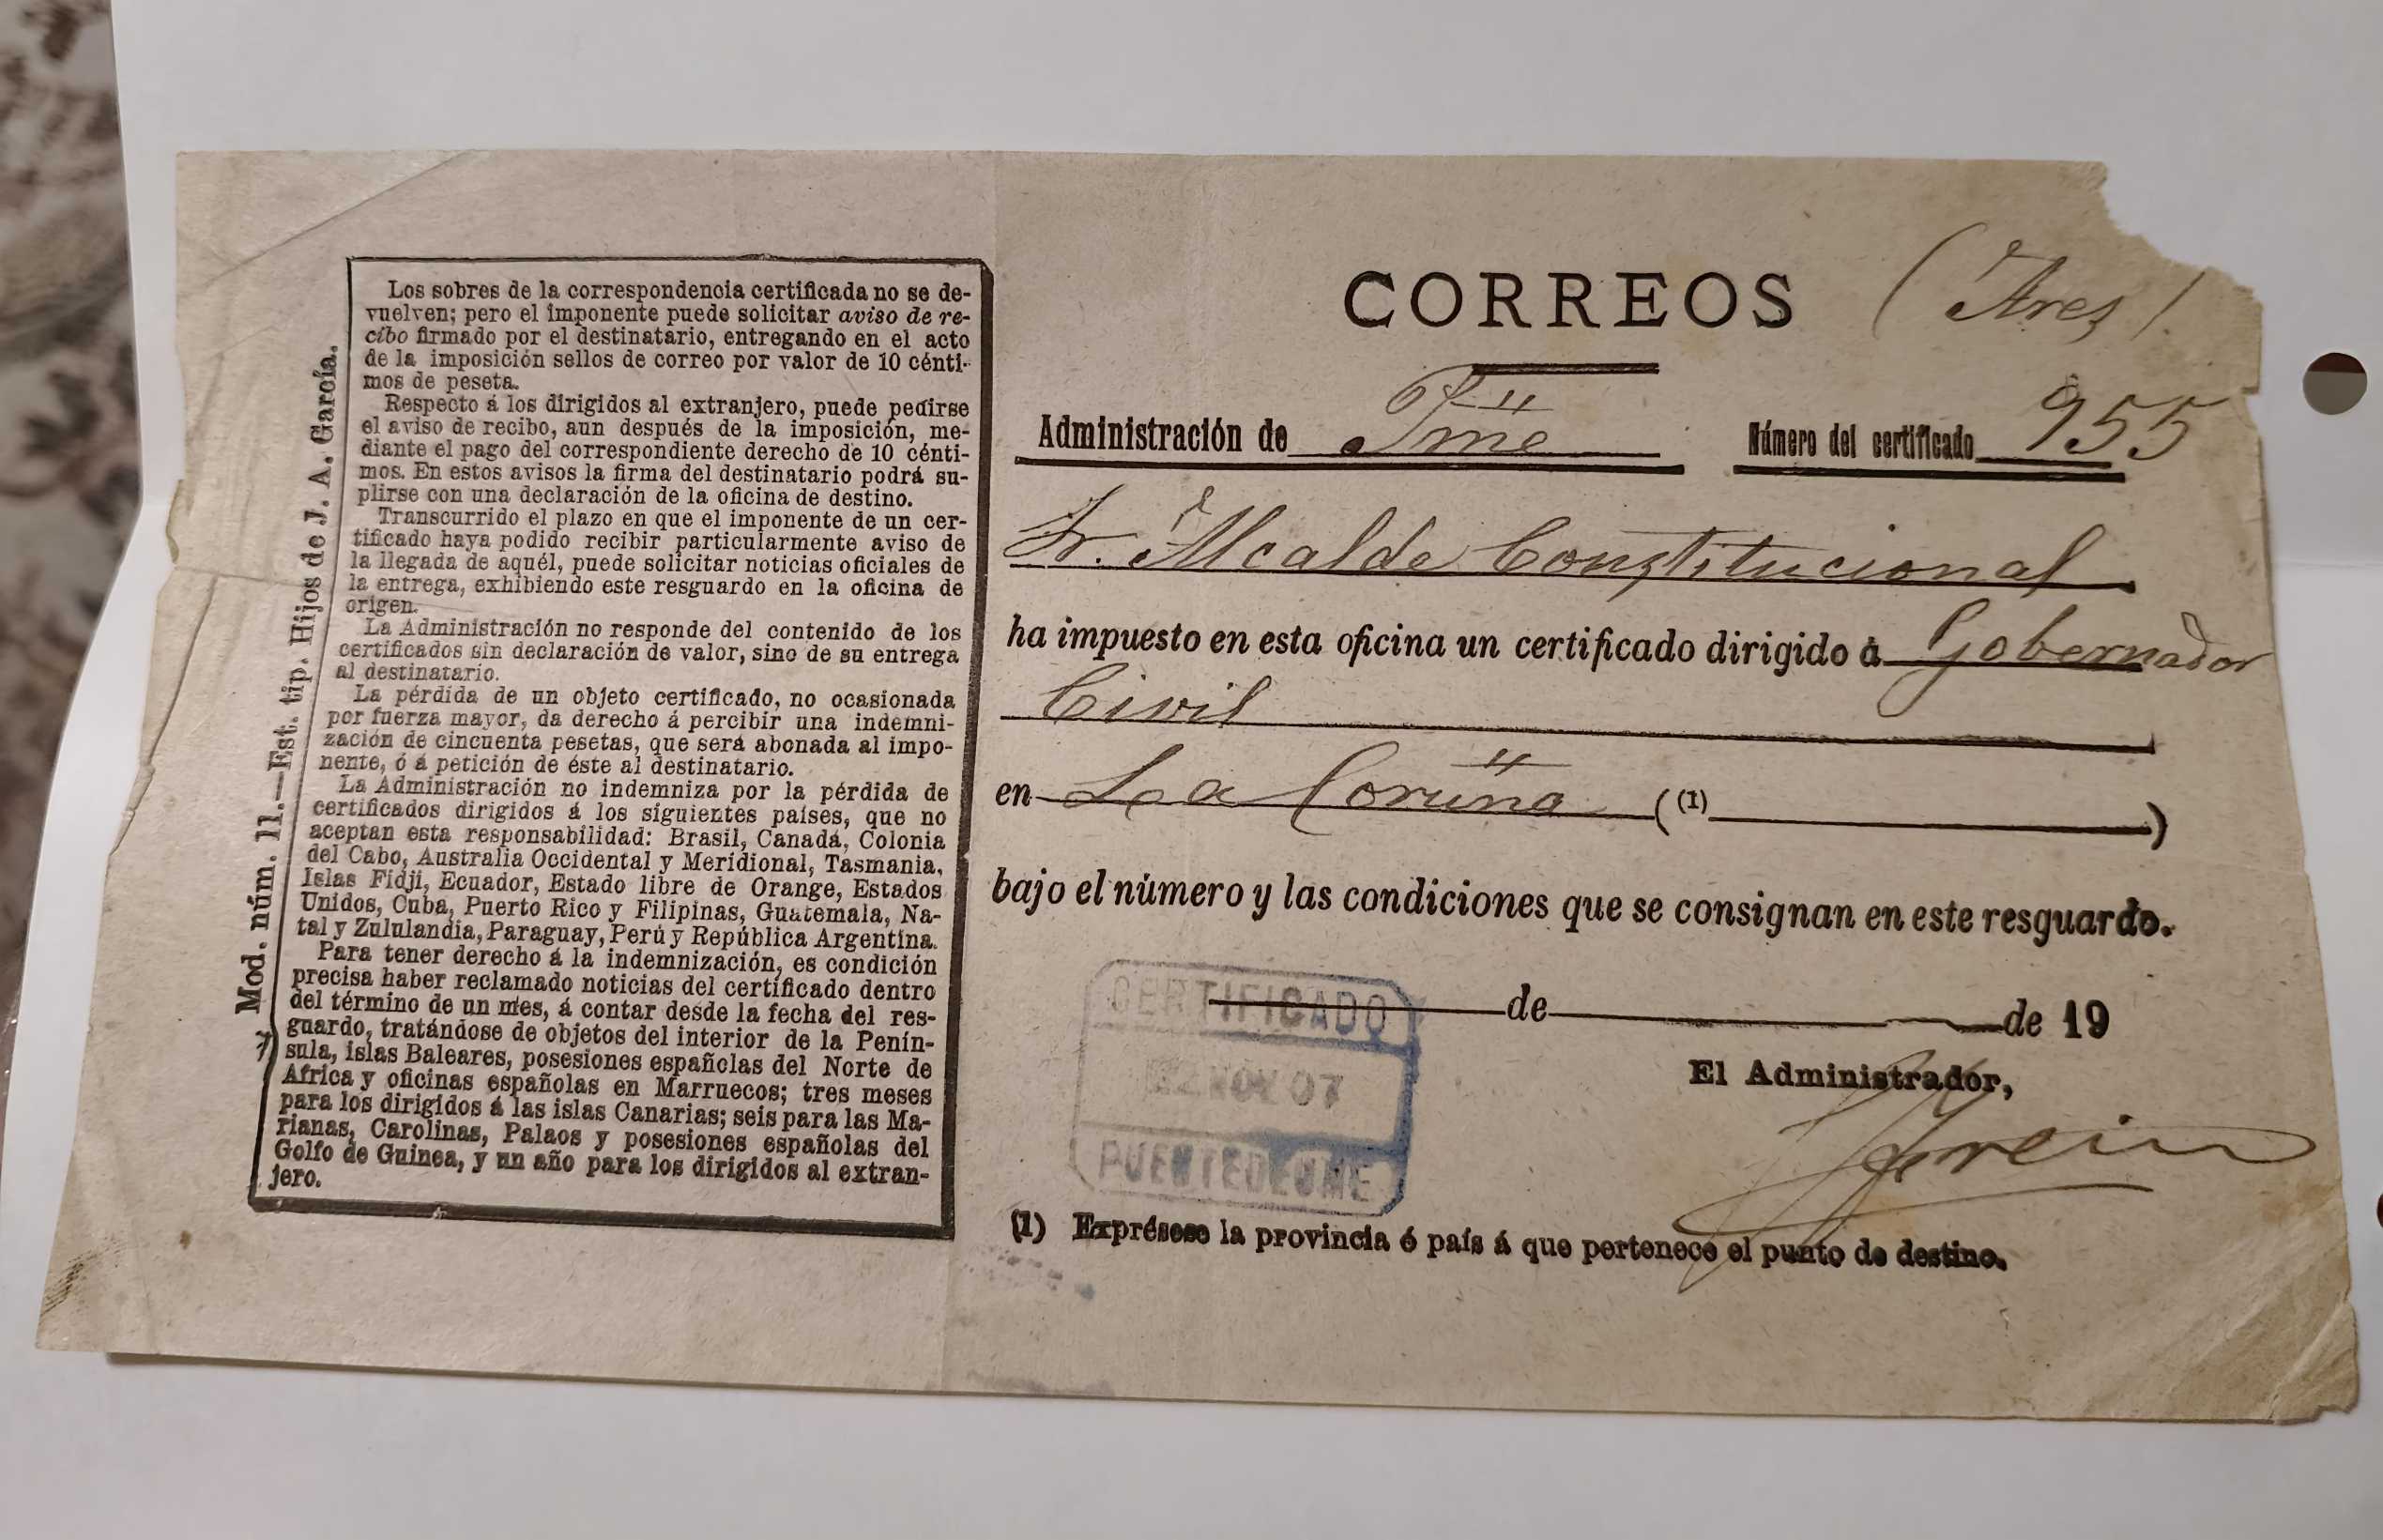 Mod. núm. 11.—Est. tip. Hijos de J. A. García.
Los sobres de la correspondencia certificada no se de-
vuelven; pero el imponente puede solicitar aviso de re-
cibo firmado por el destinatario, entregando en el acto
de la imposición sellos de correo por valor de 10 cénti-
mos de peseta.
Respecto á los dirigidos al extranjero, puede pedirse
el aviso de recibo, aun después de la imposición, me-
diante el pago del correspondiente derecho de 10 cénti-
mos. En estos avisos la firma del destinatario podrá su-
plirse con una declaración de la oficina de destino.
Transcurrido el plazo en que el imponente de un cer-
tificado haya podido recibir particularmente aviso de
la llegada de aquél, puede solicitar noticias oficiales de
la entrega, exhibiendo este resguardo en la oficina de
origen.
La Administración no responde del contenido de los
certificados sin declaración de valor, sino de su entrega
al destinatario.
La pérdida de un objeto certificado, no ocasionada
por fuerza mayor, da derecho á percibir una indemni-
zación de cincuenta pesetas, que será abonada al impo-
nente, ó á petición de éste al destinatario.
La Administración no indemniza por la pérdida de
certificados dirigidos á los siguientes países, que no
aceptan esta responsabilidad: Brasil, Canadá, Colonia
del Cabo, Australia Occidental y Meridional, Tasmania,
Islas Fidji, Ecuador, Estado libre de Orange, Estados
Unidos, Cuba, Puerto Rico y Filipinas, Guatemala, Na-
tal y Zululandia, Paraguay, Perú y República Argentina.
Para tener derecho á la indemnización, es condición
precisa haber reclamado noticias del certificado dentro
del término de un mes, á contar desde la fecha del res-
guardo, tratándose de objetos del interior de la Penín-
sula, islas Baleares, posesiones españolas del Norte de
Africa y oficinas españolas en Marruecos; tres meses
para los dirigidos á las islas Canarias; seis para las Ma-
rianas, Carolinas, Palaos y posesiones españolas del
Golfo de Guinea, y un año para los dirigidos al extran-
jero.
CORREOS (Ares)
Administración de Número del certificado 955
Sr. Alcalde Constitucional
ha impuesto en esta oficina un certificado dirigido á Gobernador
Civil
en La Coruña ((1) )
bajo el número y las condiciones que se consignan en este resguardo.
de de 19
CERTIFICADO
NOV 07
PUENTEDEUME
El Administrador,
(1) Exprésese la provincia ó país á que pertenece el punto de destino.